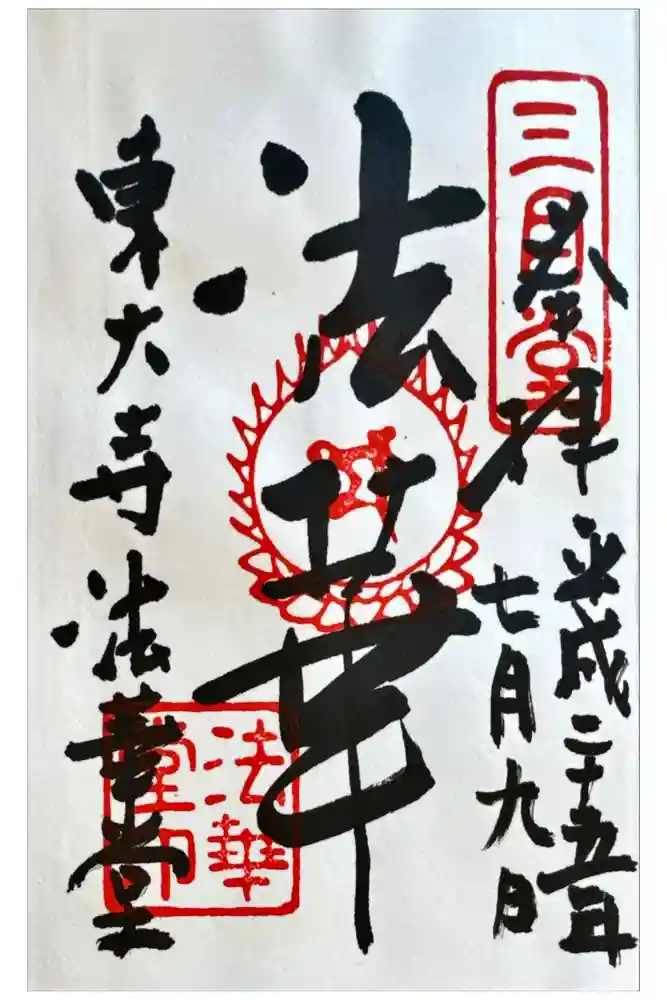 奉拝
平成二十五年
七月九日
三月堂
法華
東大寺法華堂
法華
堂印